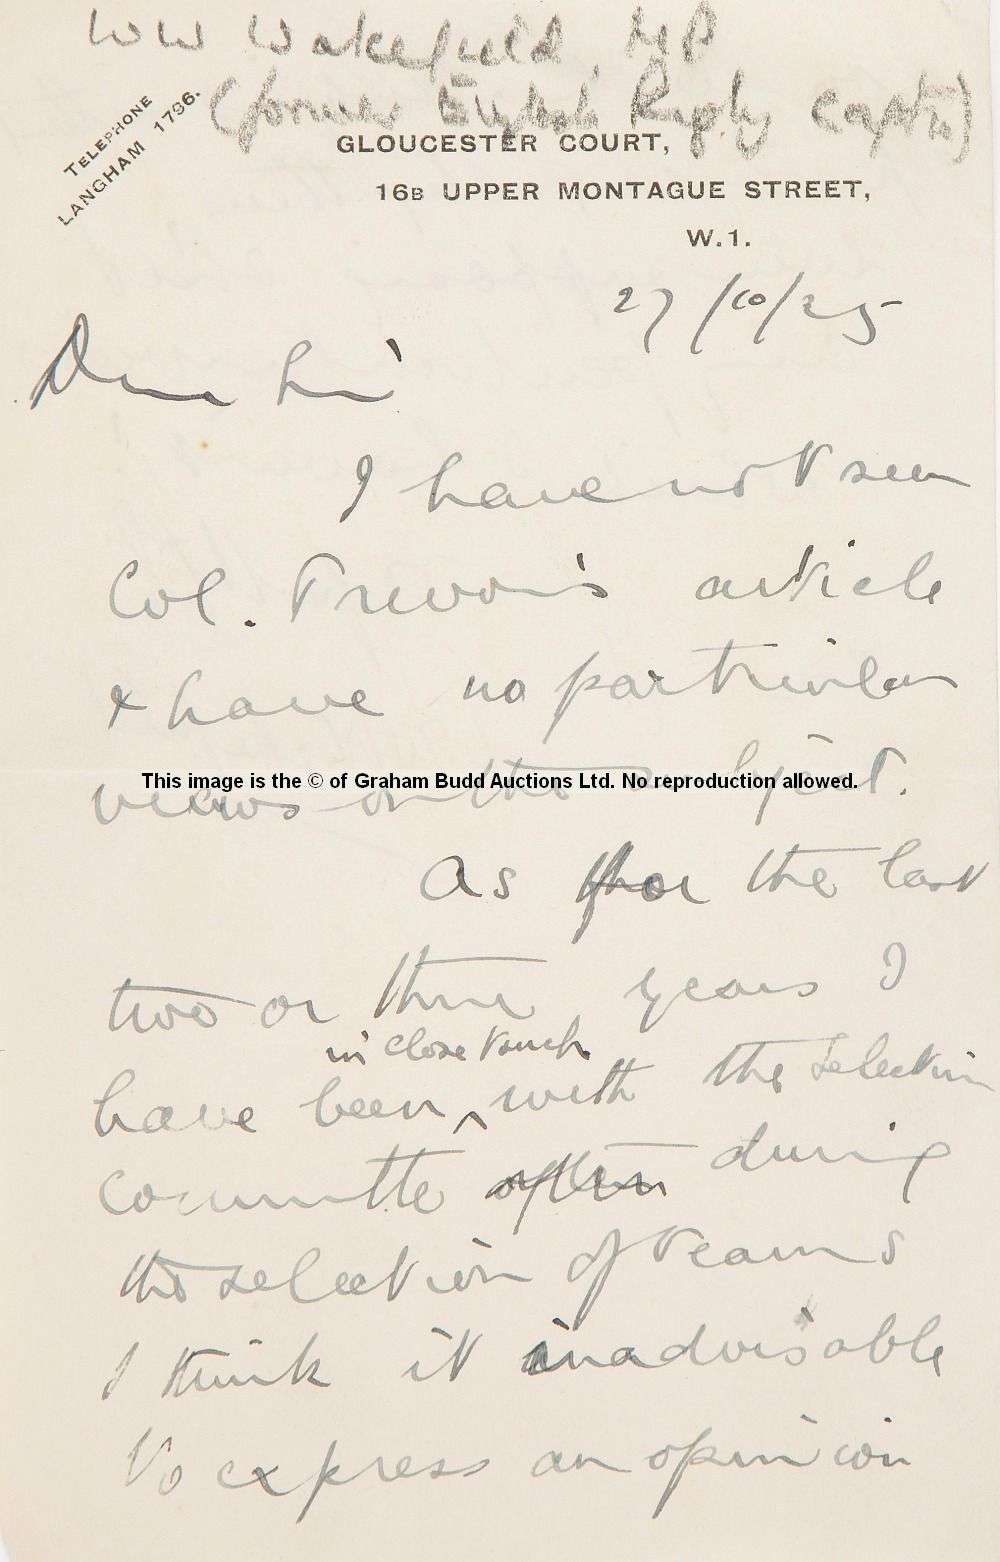 WW Wakefield, MP
(former English Rugby Captn)
TELEPHONE
LANGHAM 1796.
GLOUCESTER COURT,
16B UPPER MONTAGUE STREET,
W.1.
27/10/25
Dear Sir
I have not seen
Col. Trevor's article
& have no particular
views on the subject.
This image is the © of Graham Budd Auctions Ltd. No reproduction allowed.
As for the last
two or three years I
in close touch
have been ^ with the selection
Committe during
the selection of teams
I think it inadvisable
to express an opinion